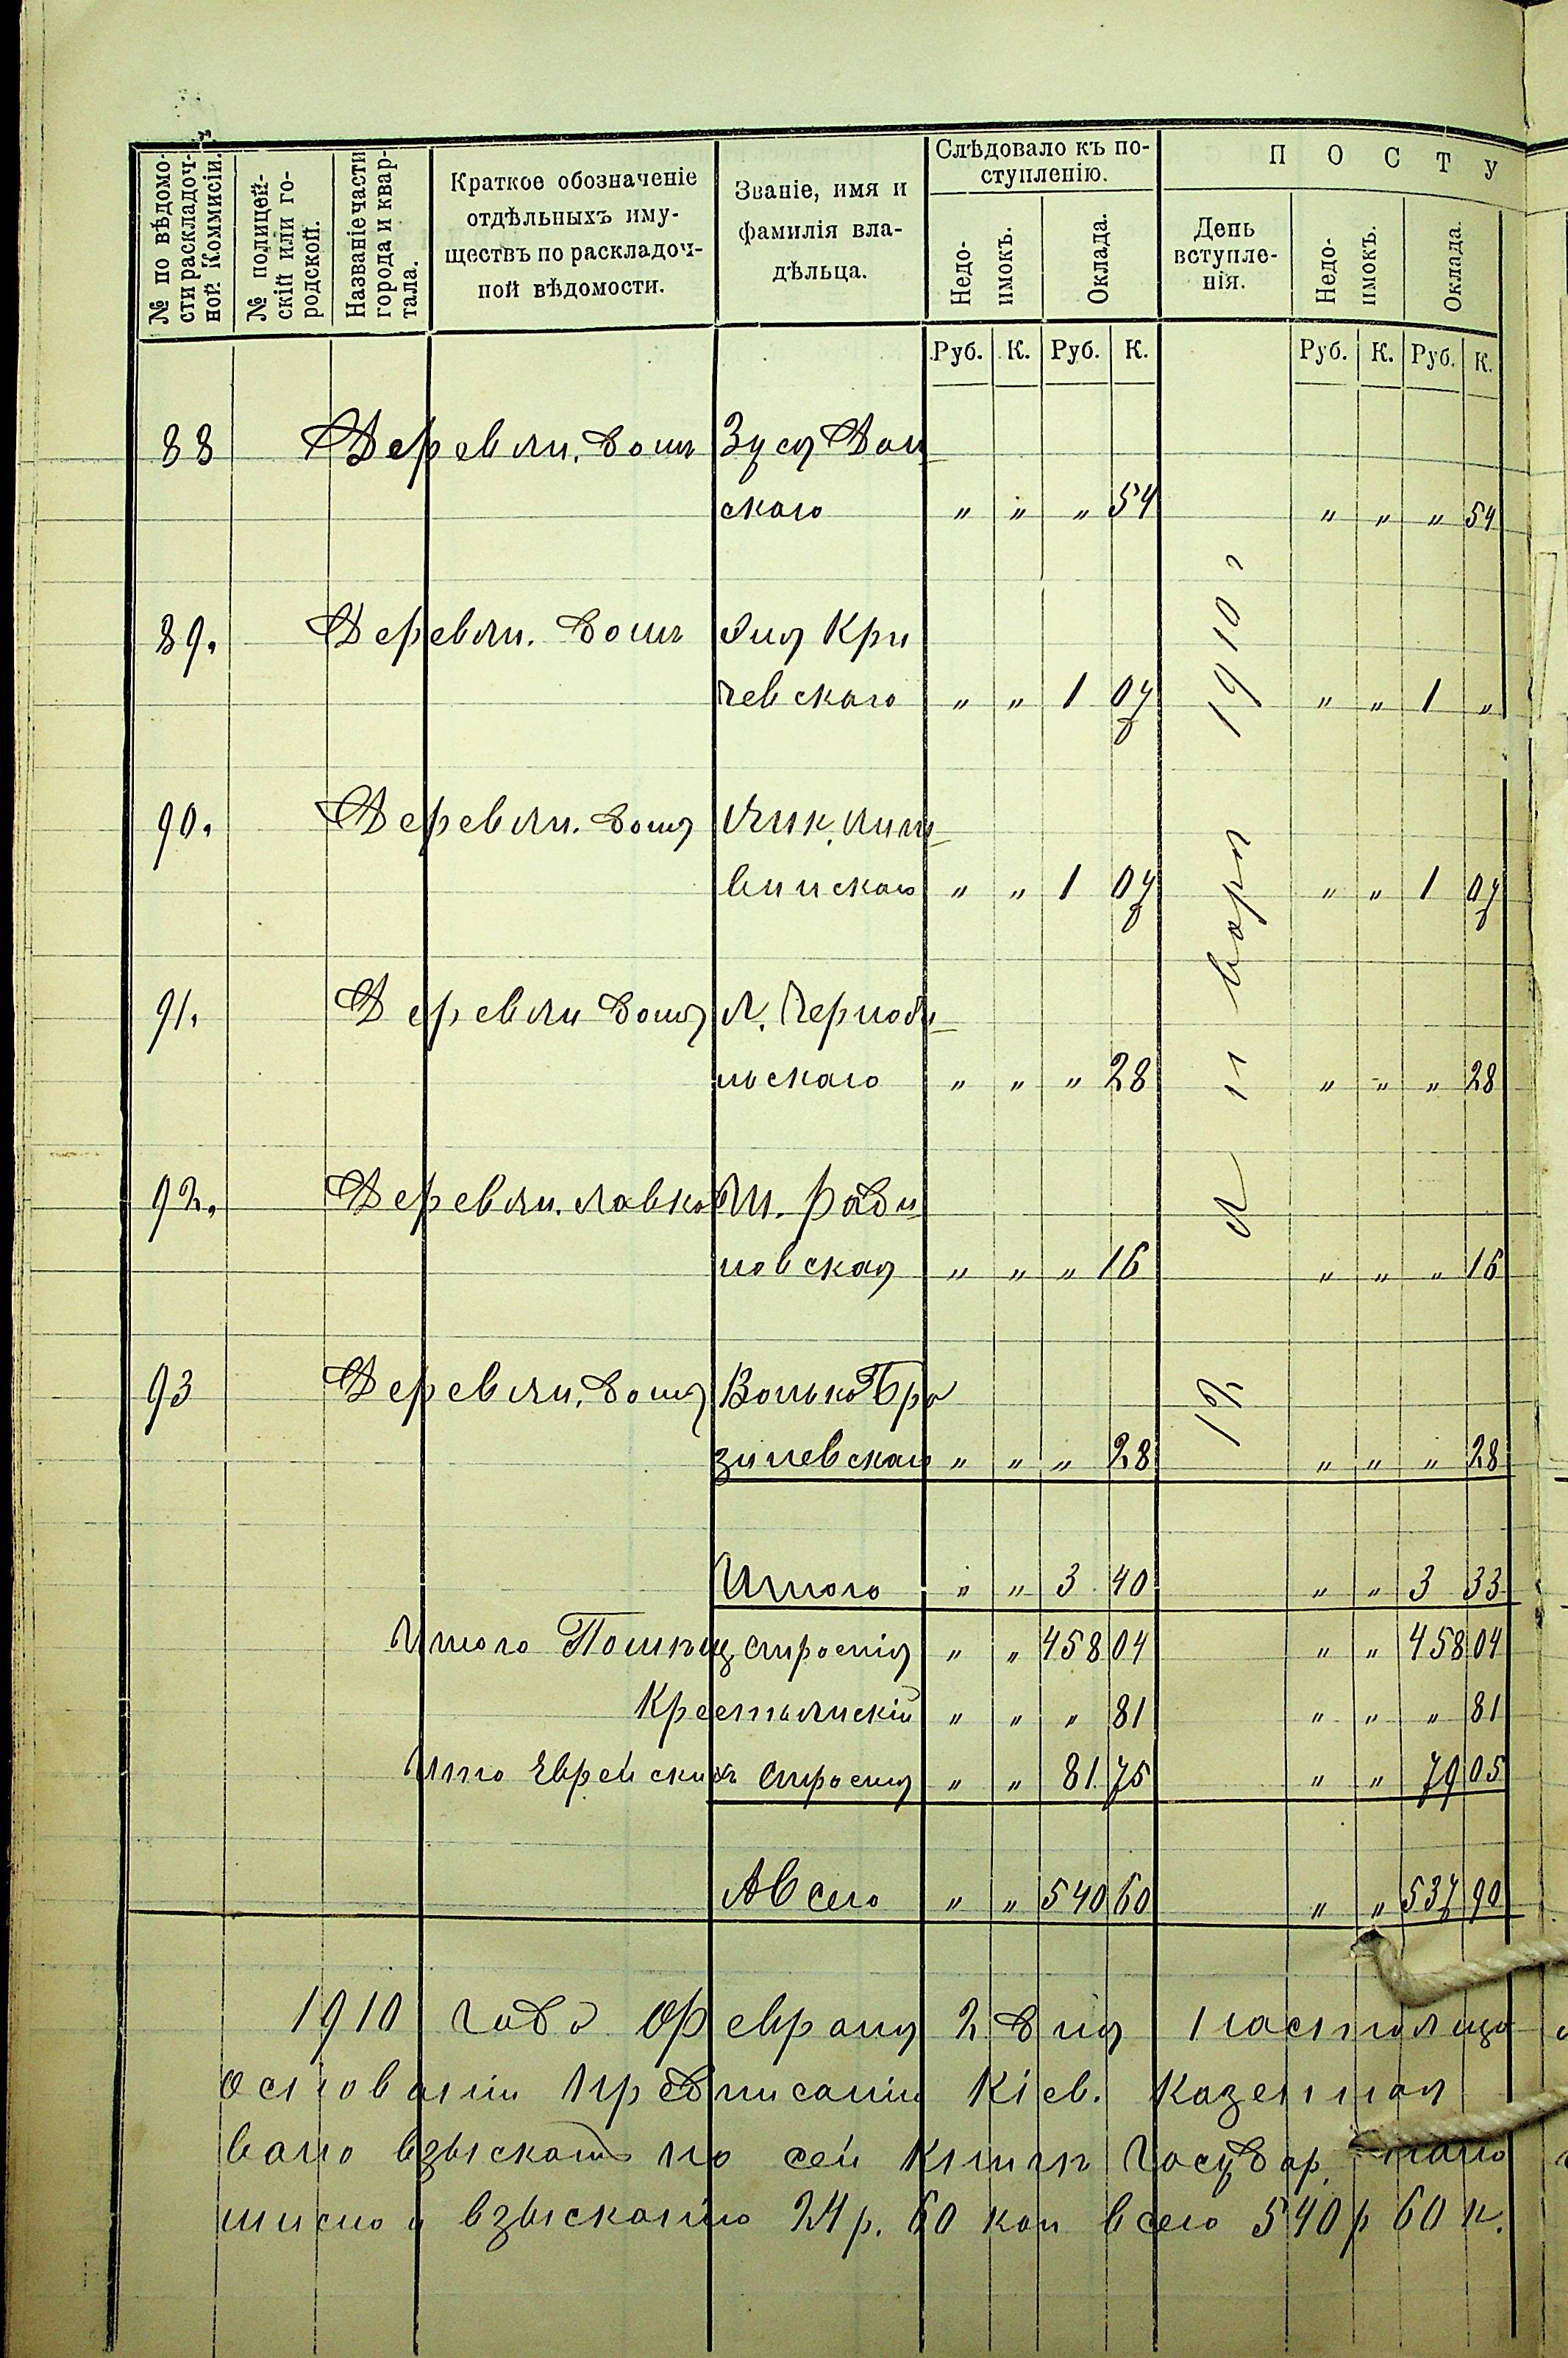 № по вѣдомо-
сти раскладоч-
ной Коммисіи.
№ полицей-
скій или го-
родской.
Названіе части
города и квар-
тала.
Краткое обозначеніе
отдѣльныхъ иму-
ществъ по раскладоч-
ной вѣдомости.
Званіе, имя и
фамилія вла-
дѣльца.
Слѣдовало къ по-
ступленію.
Недо-
имокъ.
Оклада.
П О С Т У
День
вступле-
нія.
Недо-
имокъ.
Оклада.
Руб. К. Руб. К. Руб. К. Руб. К.
88 Деревян. домъ Зуся Дон
скаго " " " 54 " " " 54
89. Деревян. домъ Кри
чевскаго " " 1 07 " " 1 "
90. Деревян. дома
" " 1 07 " " 1 07
91. Деревян дома Л. Чернобы
льскаго " " " 28 " " " 28
92. Деревян. лавка М. Раби
новская " " " 16 " " " 16
93 Деревян. дома Волько Бра
зилевскаго " " " 28 " " " 28
1910 г
Января
Итого " " 3 40 " " 3 33
Итого Помѣщ строенія " " 458 04 " " 458 04
Крестьянскій " " " 81 " " " 81
Итго Еврейскихъ строенія " " 81 75 79 05
А всего " " 540 60 " " 537 90
1910 года Февраля 2 дня настояща
основаніи предписанія Кіев. Казенная
вано взыскать по сей книгѣ Государ.
взысканію 24 р. 60 коп всего 540 р 60 к.